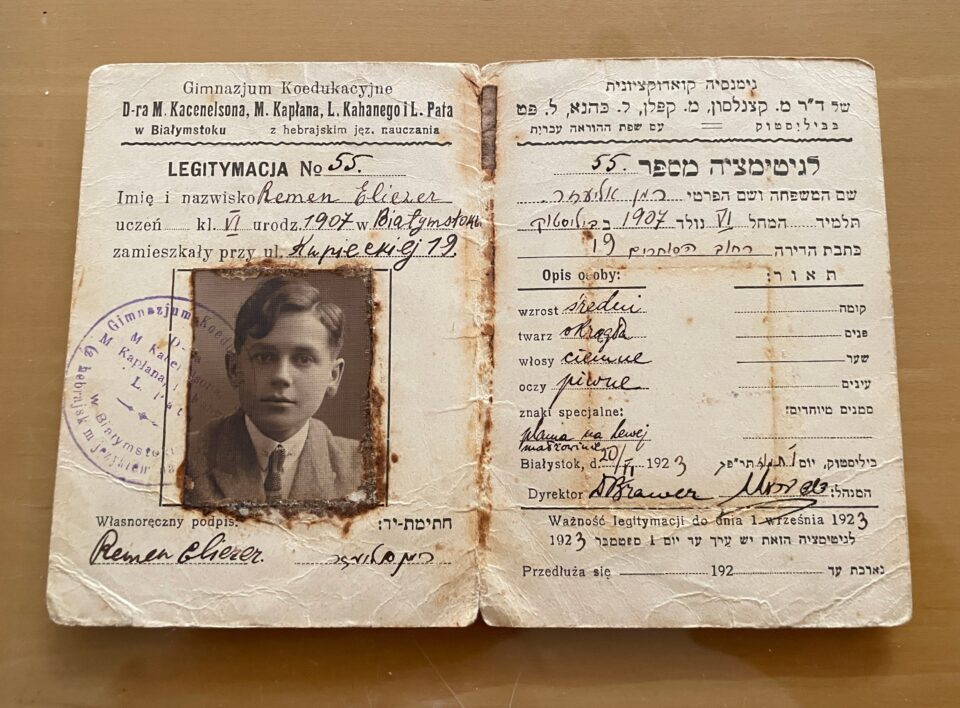 Gimnazjum Koedukacyjne
D-ra M. Kacenelsona, M. Kapłana, L. Kahanego i L. Pata
w Białymstoku z hebrajskim jęz. nauczania
LEGITYMACJA No 55.
Imię i nazwisko Remen Eliezer
uczeń kl. VI urodz. 1907 w Białymstoku
zamieszkały przy ul. Kupieckiej 19.
Gimnazjum Koedu
D-ra
M. Kacenelsona
M. Kapłana, L.
L. Pata
w Białymstoku
z hebrajskim językiem
Własnoręczny podpis: חתימת-יד:
Remen Eliezer. רמן אליעזר
גימנסיה קואדוקציונית
של ד"ר מ. קצנלסון, מ. קפלן, ל. כהנא, ל. פט
בביליסטוק עם שפת ההוראה עברית
לגיטימציה מספר 55.
שם המשפחה ושם הפרטי רמן אליעזר.
תלמיד המחל VI נולד 1907 ב ביליסטוק
כתבת הדירה רחוב הסוחרים 19
Opis osoby: תאור:
wzrost średni קומה
twarz okrągła פנים
włosy ciemne שער
oczy piwne עינים
znaki specjalne: סמנים מיוחדים:
plama na lewej
małżowinie
Białystok, d. 20/II 1923 ביליסטוק, יום
Dyrektor D Brawer המנהל:
Ważność legitymacji do dnia 1 września 1923
לגיטימציה הזאת יש ערך עד יום 1 ספטמבר 1923
Przedłuża się 192 נארכת עד